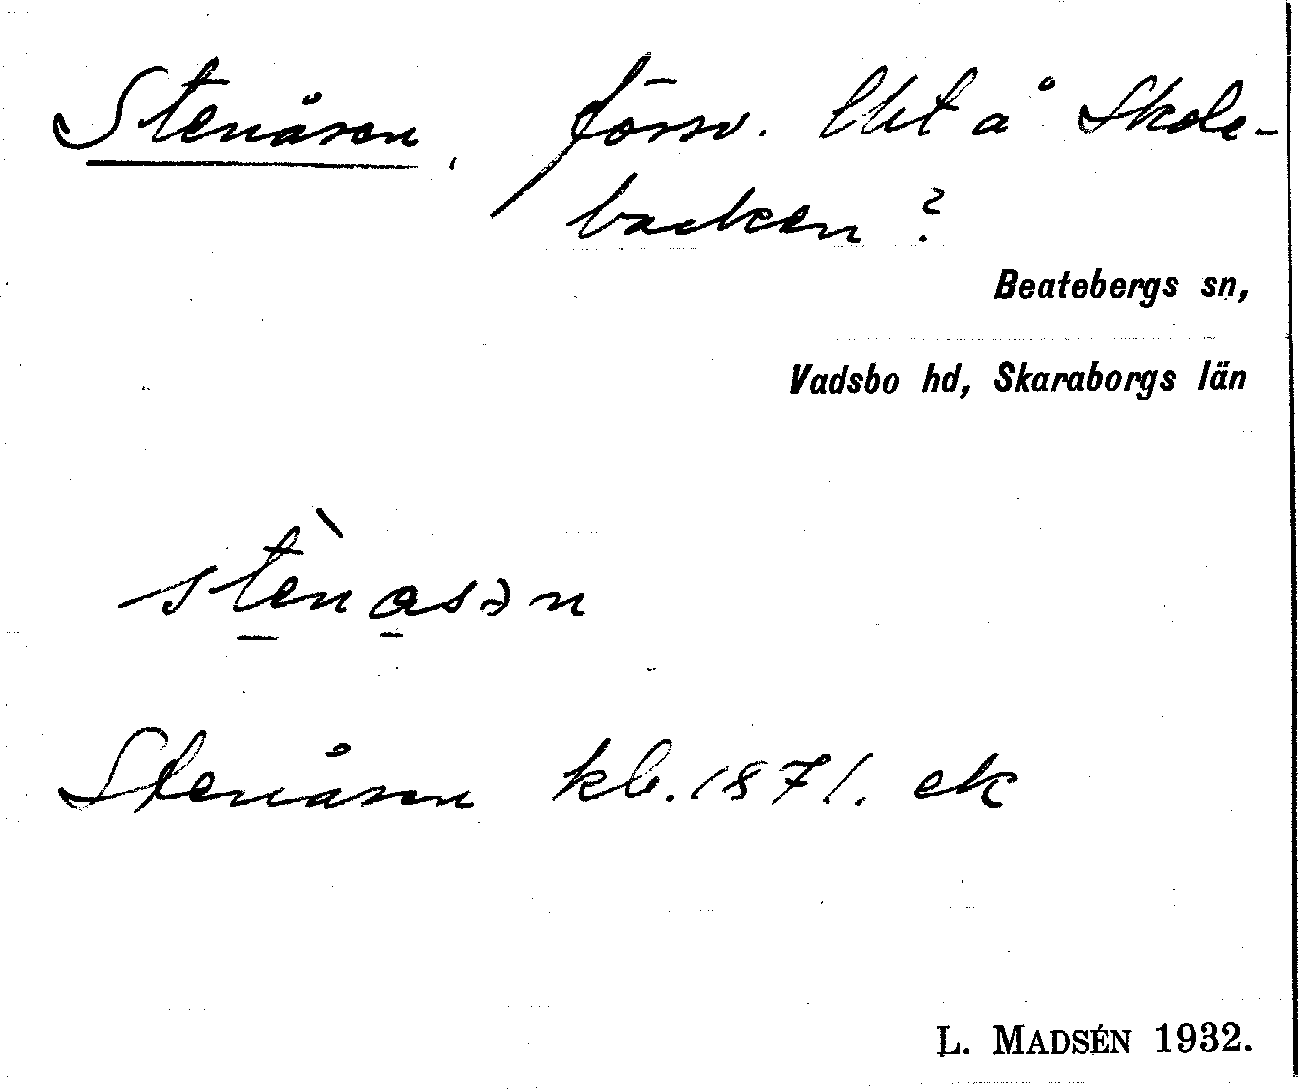 Stenåsen, försv. lht å Skole-
backen?
Beatebergs sn,
Vadsbo hd, Skaraborgs län
stènasən
Stenåsen kb. 1871. ek
L. MADSÉN 1932.